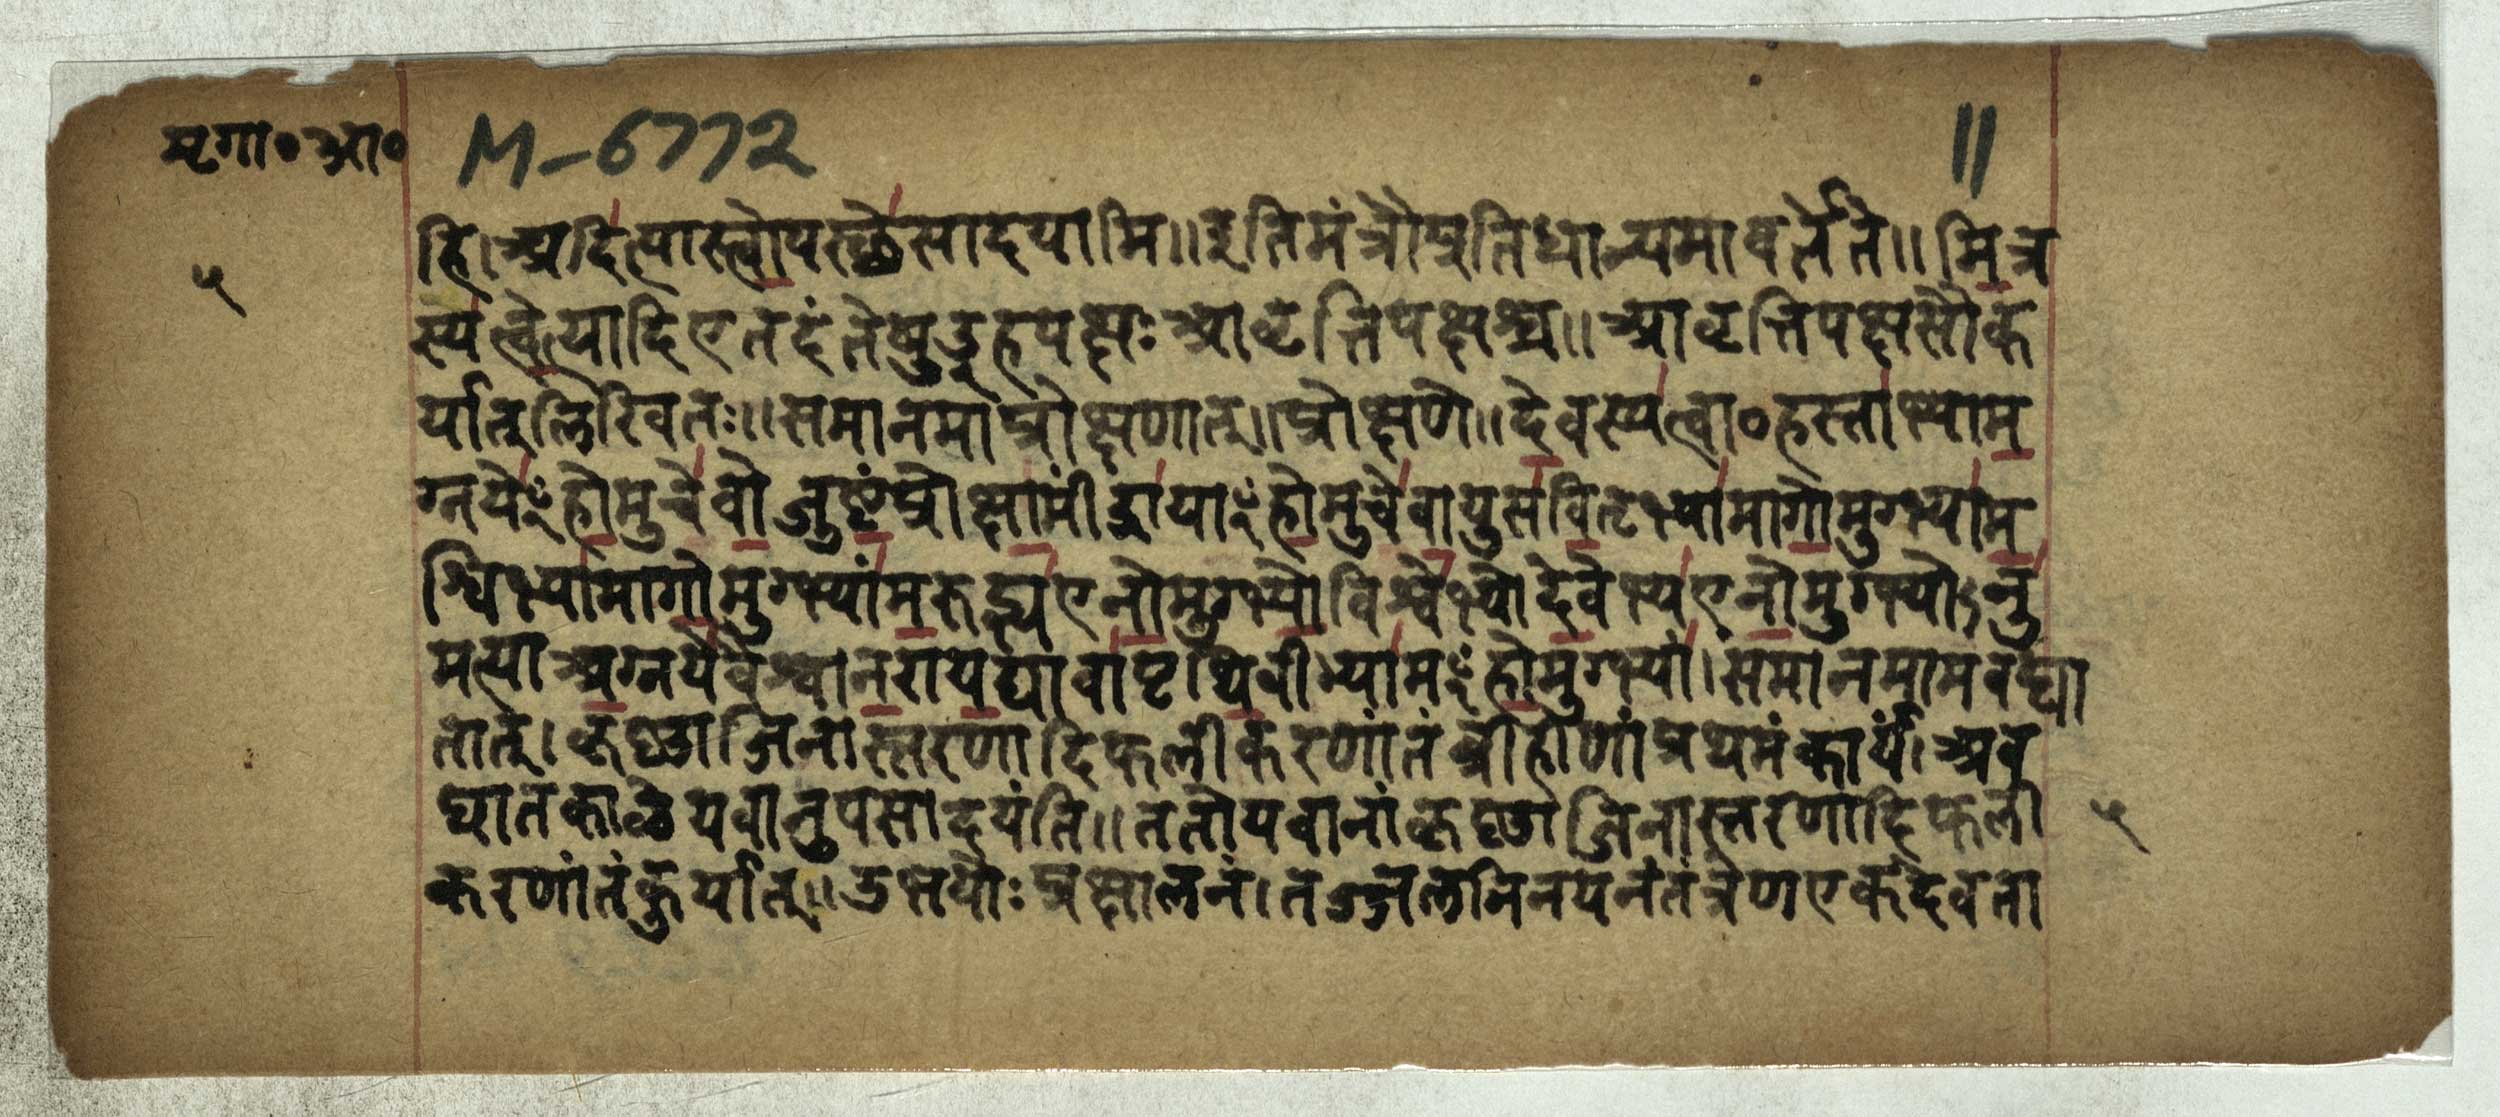 मृगा०आ० M-6772 11
५
हि।अदित्यास्त्वोपस्थेसादयामि॥इतिमंत्रौप्रतिधान्यमावर्तेते॥मित्र
स्यत्वेत्यादिएतदंतेषुऊहपक्षः आवृत्तिपक्षश्च॥आवृत्तिपक्षसौक
र्यात्लिखितः॥समानमाप्रोक्षणात्॥प्रोक्षणे॥देवस्यत्वा०हस्ताभ्याम
ग्नयेꣳहोमुचेवोजुष्टंप्रोक्षामींद्रायाꣳहोमुचेवायुसवितृभ्यामागोमुग्भ्याम
श्विभ्यामागोमुग्भ्यांमरुद्भ्यएनोमुग्भ्योविश्वेभ्योदेवेभ्यएनोमुग्भ्योऽनु
मत्याअग्नयेवैश्वानरायद्यावापृथिवीभ्यामꣳहोमुग्भ्यां।समानमामवघा
तात्।कृष्णाजिनास्तरणादिफलीकरणांतंव्रीहीणांप्रथमंकार्यं।अव
घातकाळेयवानुपसादयंति॥ततोयवानांकृष्णाजिनास्तरणादिफली
५
करणांतंकुर्यात्॥उभयोःप्रक्षालनं।तज्जलनिनयनंतंत्रेणएकदेवता